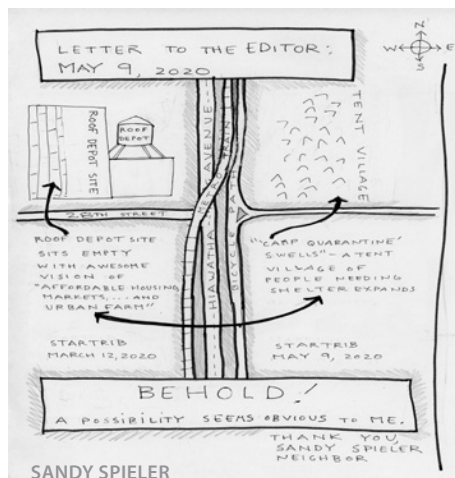 LETTER TO THE EDITOR:
MAY 9, 2020
W
E
S
ROOF DEPOT SITE
ROOF
DEPOT
HIAWATHA AVENUE
METRO TRAIN
BICYCLE PATH
TENT VILLAGE
28TH STREET
ROOF DEPOT SITE
SITS EMPTY
WITH AWESOME
VISION OF
"AFFORDABLE HOUSING,
MARKETS,... AND
URBAN FARM"
STARTRIB
MARCH 12, 2020
"'CAMP QUARANTINE'
SWELLS" – A TENT
VILLAGE OF
PEOPLE NEEDING
SHELTER EXPANDS
STARTRIB
MAY 9, 2020
BEHOLD!
A POSSIBILITY SEEMS OBVIOUS TO ME.
THANK YOU,
SANDY SPIELER
NEIGHBOR
SANDY SPIELER